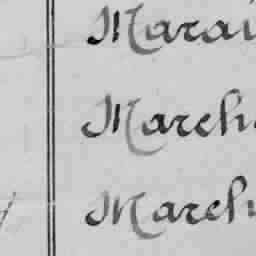 Marai
March
March